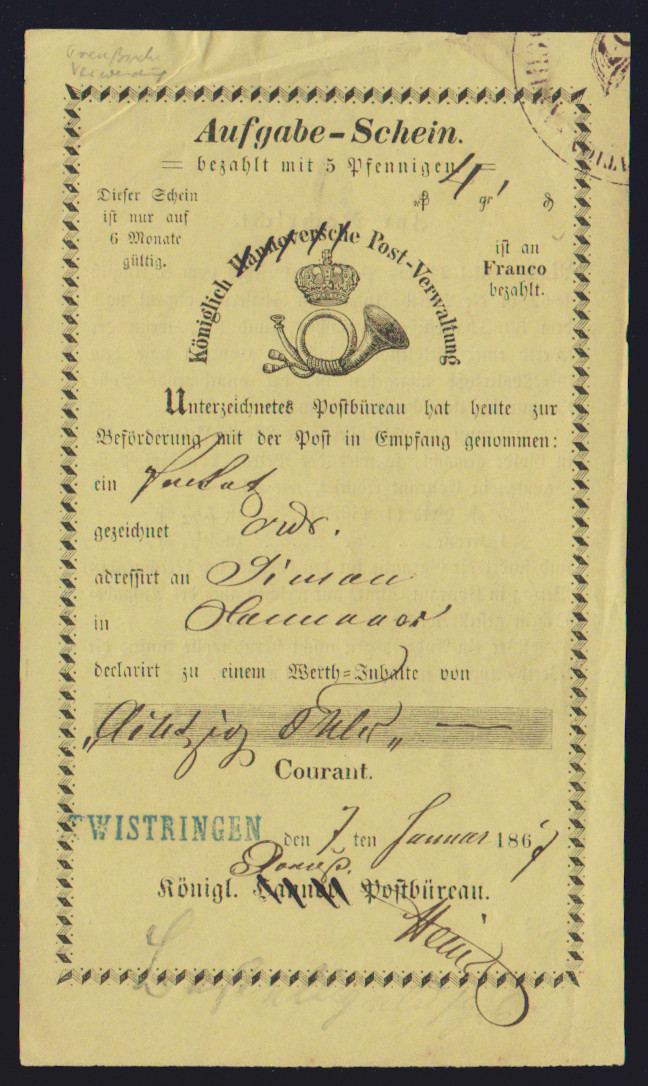 Preußische
Verwendung
Aufgabe-Schein.
bezahlt mit 5 Pfennigen
Dieser Schein
ist nur auf
6 Monate
gültig.
4 gr ₰
ist an
Franco
bezahlt.
Königlich Hannoversche Post-Verwaltung
Unterzeichnetes Postbüreau hat heute zur
Beförderung mit der Post in Empfang genommen:
ein Packet
gezeichnet
adressirt an Simon
in Hannover
declarirt zu einem Werth-Inhalte von
„Achtzig Thlr„ —
Courant.
TWISTRINGEN den 7 ten Januar 1867
Preuß.
Königl. Hannov. Postbüreau.